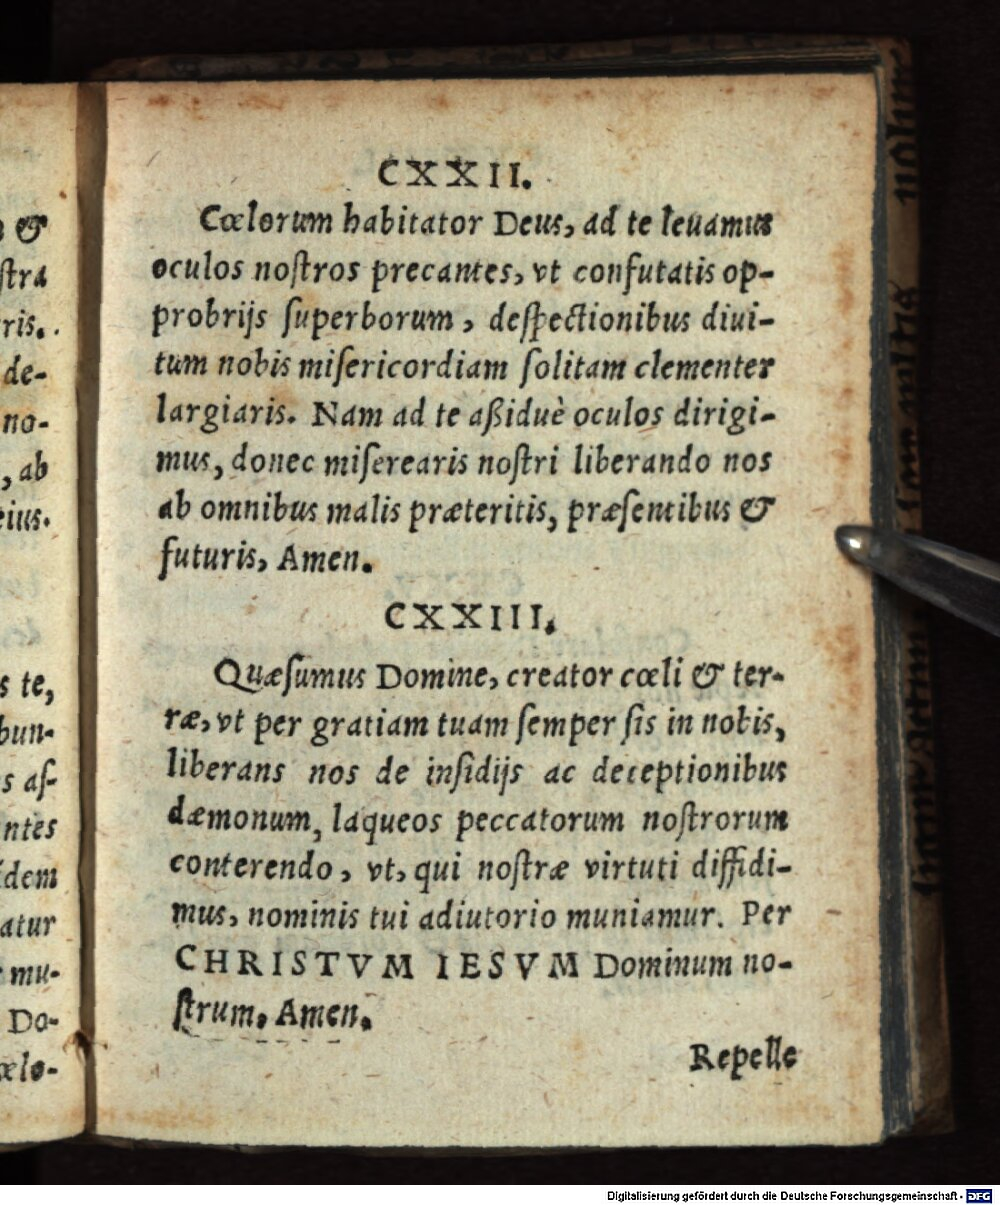 CXXII.
Cœlorum habitator Deus, ad te leuamus
oculos nostros precantes, vt confutatis op-
probrijs superborum, despectionibus diui-
tum nobis misericordiam solitam clementer
largiaris. Nam ad te aßiduè oculos dirigi-
mus, donec miserearis nostri liberando nos
ab omnibus malis præteritis, præsentibus &
futuris, Amen.
CXXIII.
Quæsumus Domine, creator cœli & ter-
ræ, vt per gratiam tuam semper sis in nobis,
liberans nos de insidijs ac deceptionibus
dæmonum, laqueos peccatorum nostrorum
conterendo, vt, qui nostræ virtuti diffidi-
mus, nominis tui adiutorio muniamur. Per
CHRISTVM IESVM Dominum no-
strum, Amen.
Repelle
&
stra
ris.
de-
no-
, ab
eius.
s te,
bun-
s as-
ntes
idem
atur
mu-
Do-
œlo-
Digitalisierung gefördert durch die Deutsche Forschungsgemeinschaft - DFG